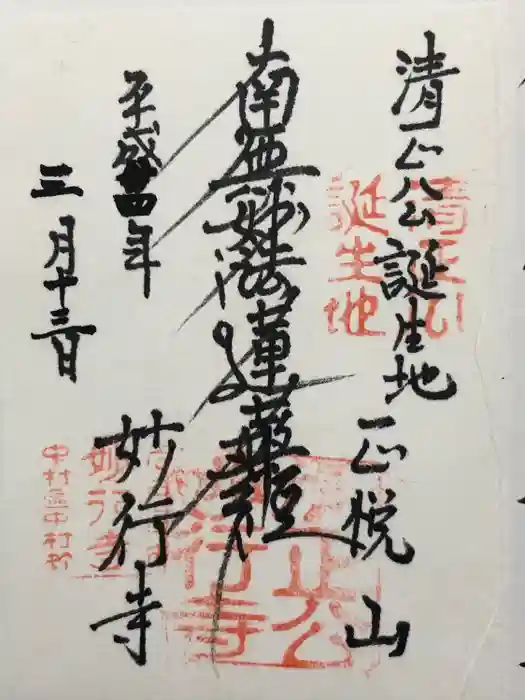 清正公誕生地
正悦山
南無妙法蓮華経
平成廿四年
三月十三日
妙行寺
清正公
誕生地
正公
行寺
妙行寺
中村区中村町